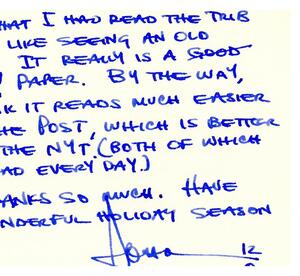 HAT I HAD READ THE TRIB
LIKE SEEING AN OLD
IT REALLY IS A GOOD
PAPER. BY THE WAY,
K IT READS MUCH EASIER
HE POST, WHICH IS BETTER
THE NYT. (BOTH OF WHICH
AD EVERY DAY.)
ANKS SO MUCH. HAVE
NDERFUL HOLIDAY SEASON
12